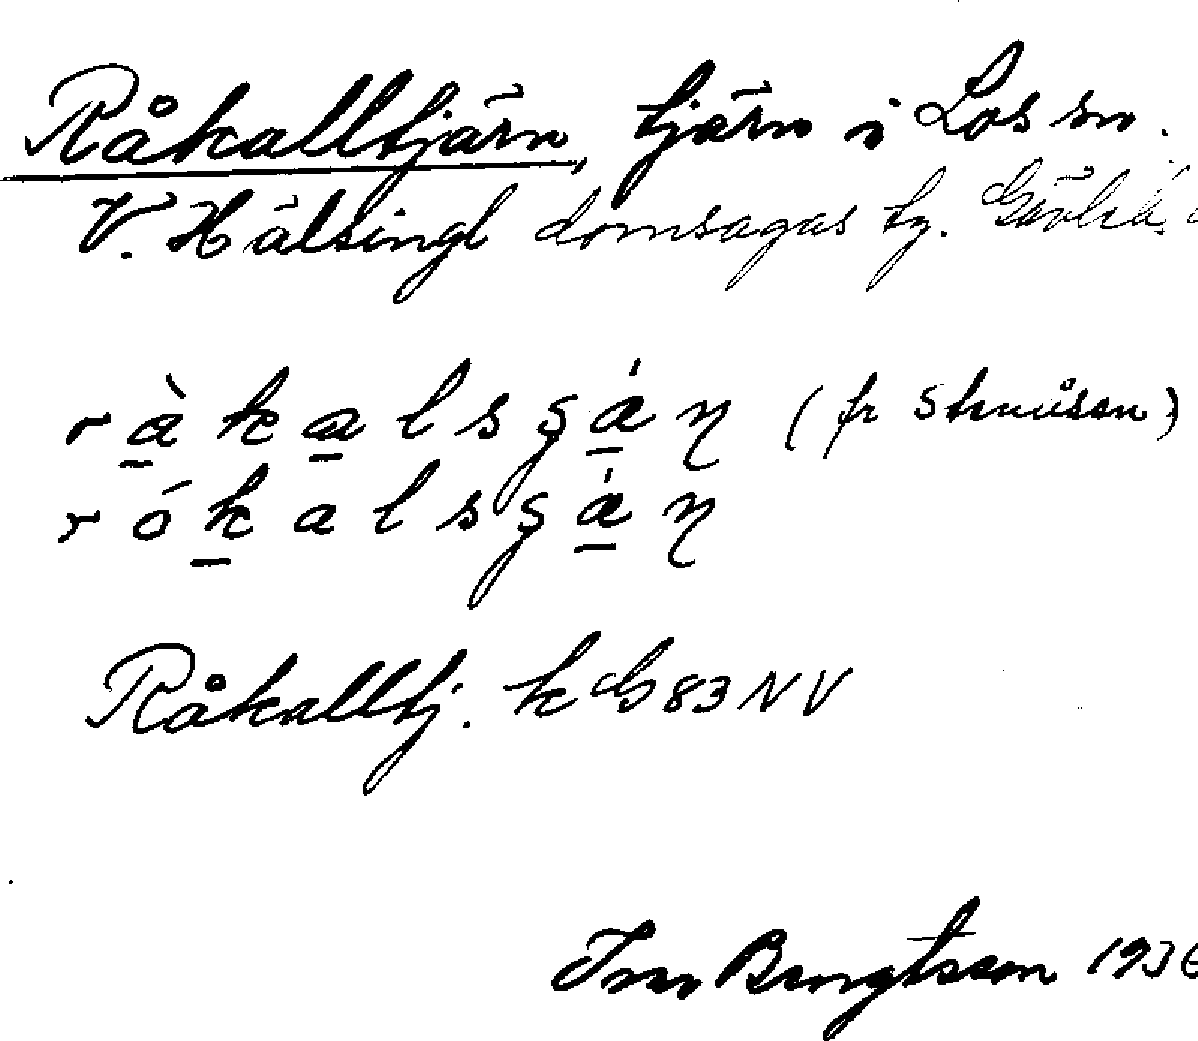 Råkalltjärn, tjärn i Los sn.
V. Hälsingl domsagas tg. Gävleb.
ràkalsşáη (fr
rókalsşáη
Råkalltj. k G 83 NV
Bengtsson 1936